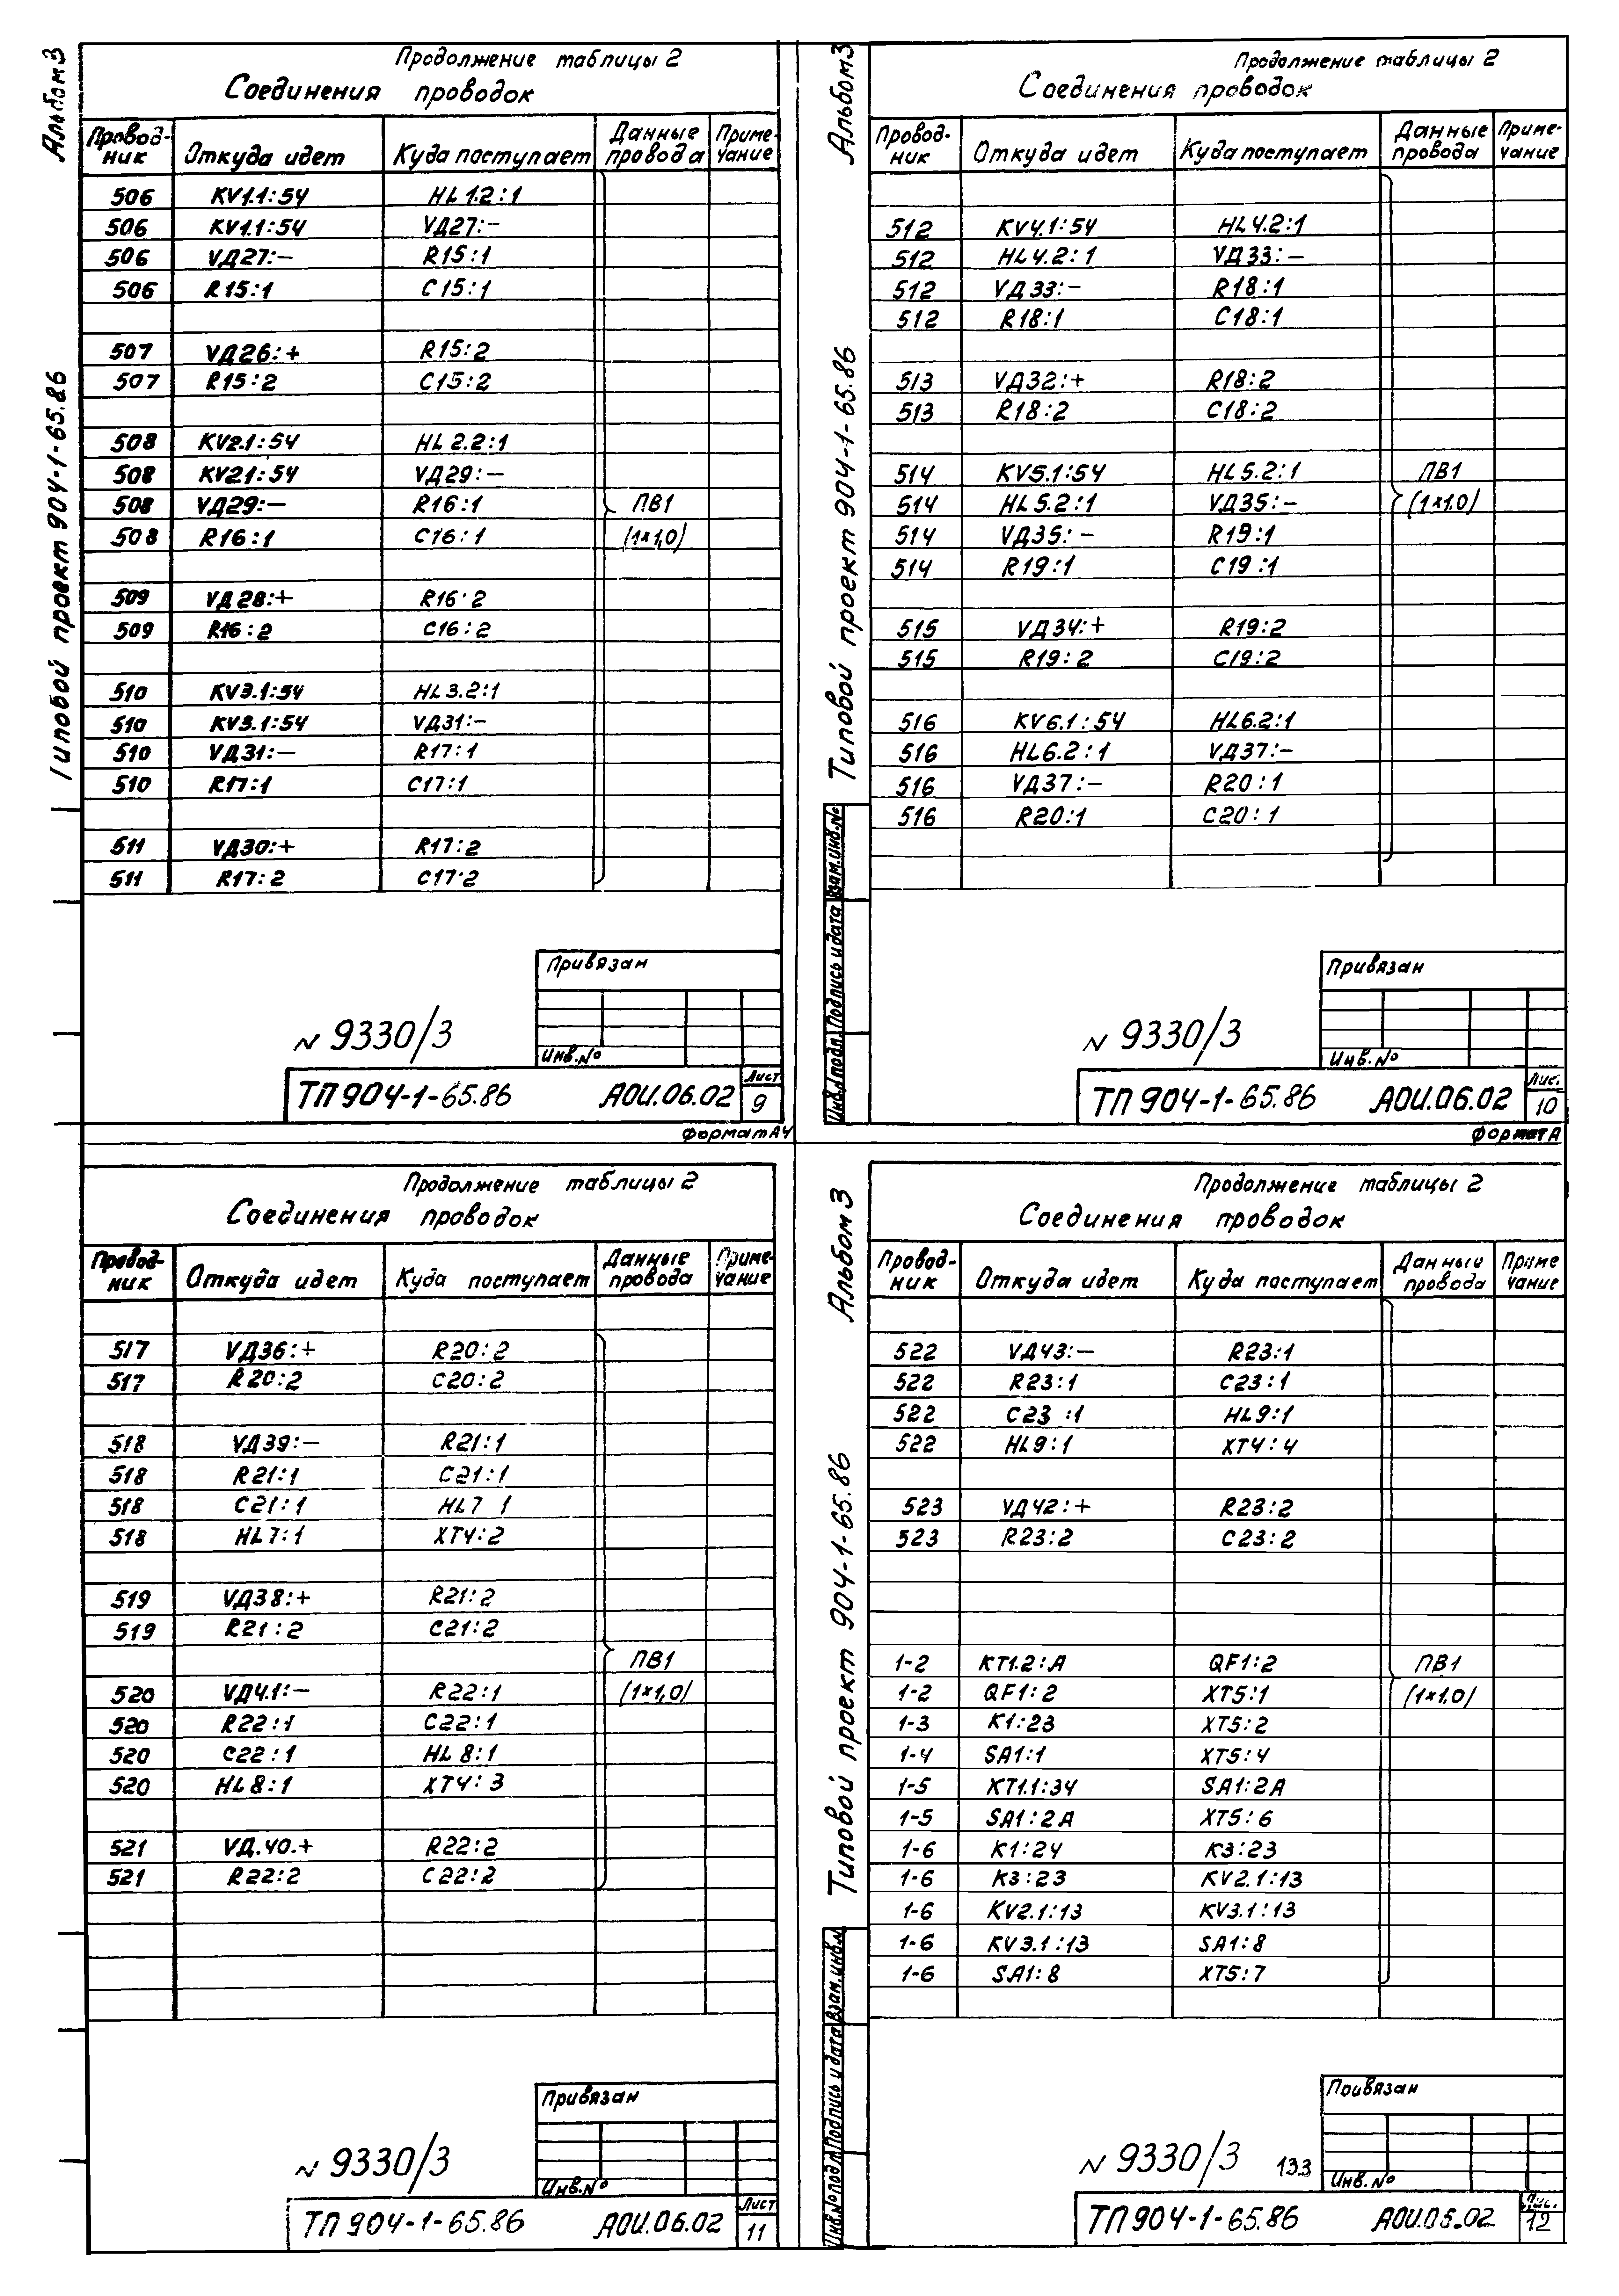 Альбом 3
Типовой проект 904-1-65.86
Продолжение таблицы 2
Соединения проводок
Провод-ник Откуда идет Куда поступает Данные провода Приме-чание
506 KV1.1:54 HL1.2:1
506 KV1.1:54 VД27:–
506 VД27:– R15:1
506 R15:1 C15:1
507 VД26:+ R15:2
507 R15:2 C15:2
508 KV2.1:54 HL2.2:1
508 KV21:54 VД29:–
508 VД29:– R16:1 ПВ1
508 R16:1 C16:1 (1×1,0)
509 VД28:+ R16·2
509 R16:2 C16:2
510 KV3.1:54 HL3.2:1
510 KV3.1:54 VД31:–
510 VД31:– R17:1
510 R17:1 C17:1
511 VД30:+ R17:2
511 R17:2 C17·2
Привязан
Инв.№
N 9330/3
ТП 904-1-65.86 АОИ.06.02 Лист 9
Формат А4
Альбом 3
Типовой проект 904-1-65.86
Продолжение таблицы 2
Соединения проводок
Провод-ник Откуда идет Куда поступает Данные провода Приме-чание
512 KV4.1:54 HL4.2:1
512 HL4.2:1 VД33:–
512 VД33:– R18:1
512 R18:1 C18:1
513 VД32:+ R18:2
513 R18:2 C18:2
514 KV5.1:54 HL5.2:1 ПВ1
514 HL5.2:1 VД35:– (1×1,0)
514 VД35:– R19:1
514 R19:1 C19:1
515 VД34:+ R19:2
515 R19:2 C19:2
516 KV6.1:54 HL6.2:1
516 HL6.2:1 VД37:–
516 VД37:– R20:1
516 R20:1 C20:1
Инв.№подл. Подпись и дата Взам.инв.№
Привязан
Инв.№
N 9330/3
ТП 904-1-65.86 АОИ.06.02 Лис. 10
Формат А
Продолжение таблицы 2
Соединения проводок
Провод-ник Откуда идет Куда поступает Данные провода Приме-чание
517 VД36:+ R20:2
517 R20:2 C20:2
518 VД39:– R21:1
518 R21:1 C21:1
518 C21:1 HL7 1
518 HL7:1 XT4:2
519 VД38:+ R21:2
519 R21:2 C21:2
ПВ1
520 VД41:– R22:1 (1×1,0)
520 R22:1 C22:1
520 C22:1 HL8:1
520 HL8:1 XT4:3
521 VД.40.+ R22:2
521 R22:2 C22:2
Привязан
Инв.№
N 9330/3
ТП 904-1-65.86 АОИ.06.02 Лист 11
Альбом 3
Типовой проект 904-1-65.86
Продолжение таблицы 2
Соединения проводок
Провод-ник Откуда идет Куда поступает Данные провода Приме чание
522 VД43:– R23:1
522 R23:1 C23:1
522 C23:1 HL9:1
522 HL9:1 XT4:4
523 VД42:+ R23:2
523 R23:2 C23:2
1-2 KT1.2:A QF1:2 ПВ1
1-2 QF1:2 XT5:1 (1×1,0)
1-3 K1:23 XT5:2
1-4 SA1:1 XT5:4
1-5 KT1.1:34 SA1:2A
1-5 SA1:2A XT5:6
1-6 K1:24 K3:23
1-6 K3:23 KV2.1:13
1-6 KV2.1:13 KV3.1:13
1-6 KV3.1:13 SA1:8
1-6 SA1:8 XT5:7
Инв.№подл. Подпись и дата Взам.инв.№
Привязан
Инв.№
N 9330/3 133
ТП 904-1-65.86 АОИ.06.02 Лис. 12